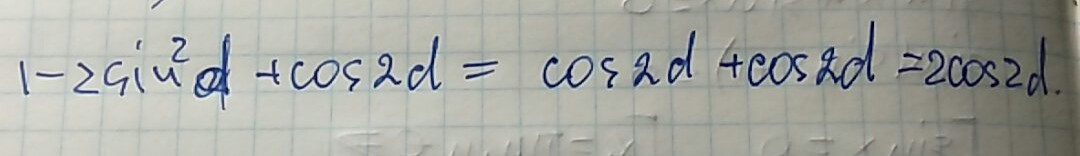 1-2sin²d +cos2d = cos2d +cos2d =2cos2d.